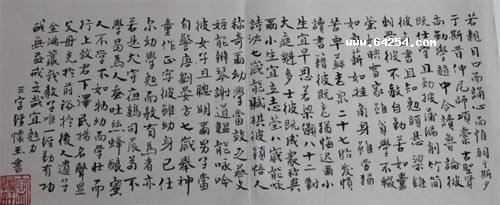 若親目口而誦心而惟朝于斯夕
于斯昔仲尼師項橐古聖賢
尚勤學趙中令讀魯論彼
既仕學且勤披蒲編削竹簡
彼無書且知勉頭懸梁錐
刺股彼不教自勤苦如囊
螢如映雪家雖貧學不輟
如負薪如掛角身雖勞猶
苦卓蘇老泉二十七始發憤
讀書籍彼既老猶悔遲爾小
生宜早思若梁灝八十二對
大庭魁多士彼既成眾稱異
爾小生宜立志瑩八歲能咏
詩泌七歲能賦棋彼穎悟人
稱奇爾幼學當效之蔡文
姬能辨琴謝道韞能咏吟
彼女子且聰明爾男子當
自警唐劉晏方七歲舉神
童作正字彼雖幼身已仕
爾幼學勉而致有為者亦
若是犬守夜雞司晨苟不
學曷為人蠶吐絲蜂釀蜜
人不學不如物幼而學壯而
行上致君下澤民揚名聲顯
父母光於前裕於後人遺子
金滿籯我教子唯一經勤有功
戲無益戒之哉宜勉力
三字經懷玉書
www.64254.com